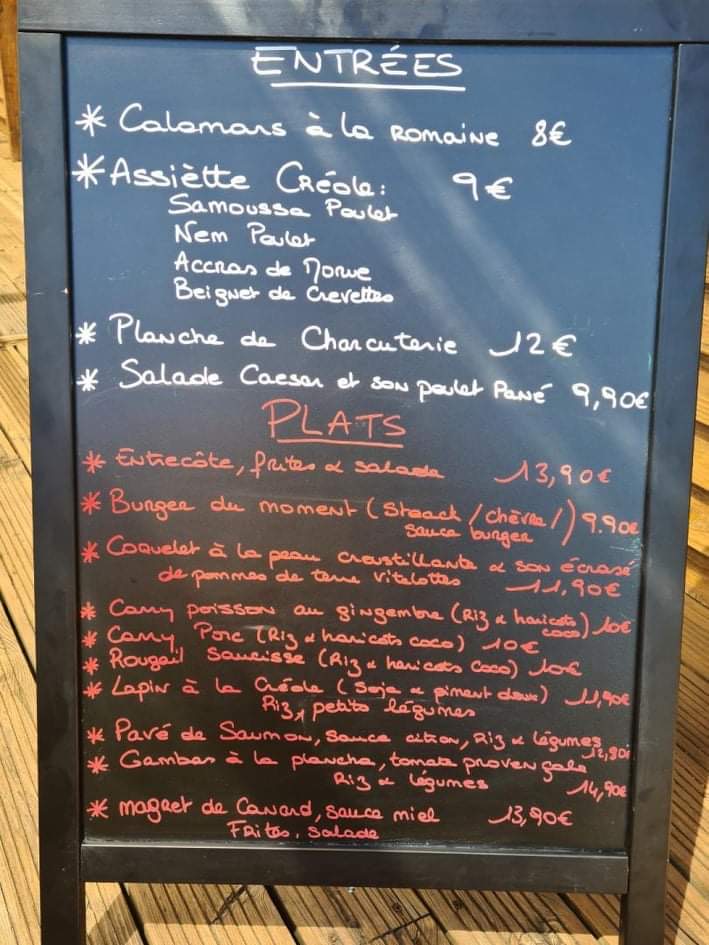 ENTRÉES
* Calamars à la ROMAINE 8€
* Assiètte Créole: 9€
Samoussa Poulet
Nem Poulet
Accras de Morue
Beignet de Crevettes
* Planche de Charcuterie 12€
* Salade Caesar et son poulet Pané 9,90€
PLATS
* Entrecôte, frites & salade 13,90€
* Burger du moment (Steack / chèvre /) 9.90€
sauce burger
* Coquelet à la peau croustillante & son écrasé
de pommes de terre Vitelottes 11,90€
* Carry poisson au gingembre (Riz & haricots coco) 10€
* Carry Porc (Riz & haricots coco) 10€
* Rougail Saucisse (Riz & haricots coco) 10€
* Lapin à la Créole (Soja & piment doux) 11,90€
Riz, petits légumes
* Pavé de Saumon, Sauce citron, Riz & légumes 12,90€
* Gambas à la plancha, tomate provençale
Riz & légumes 14,90€
* magret de Canard, sauce miel 13,90€
Frites, salade